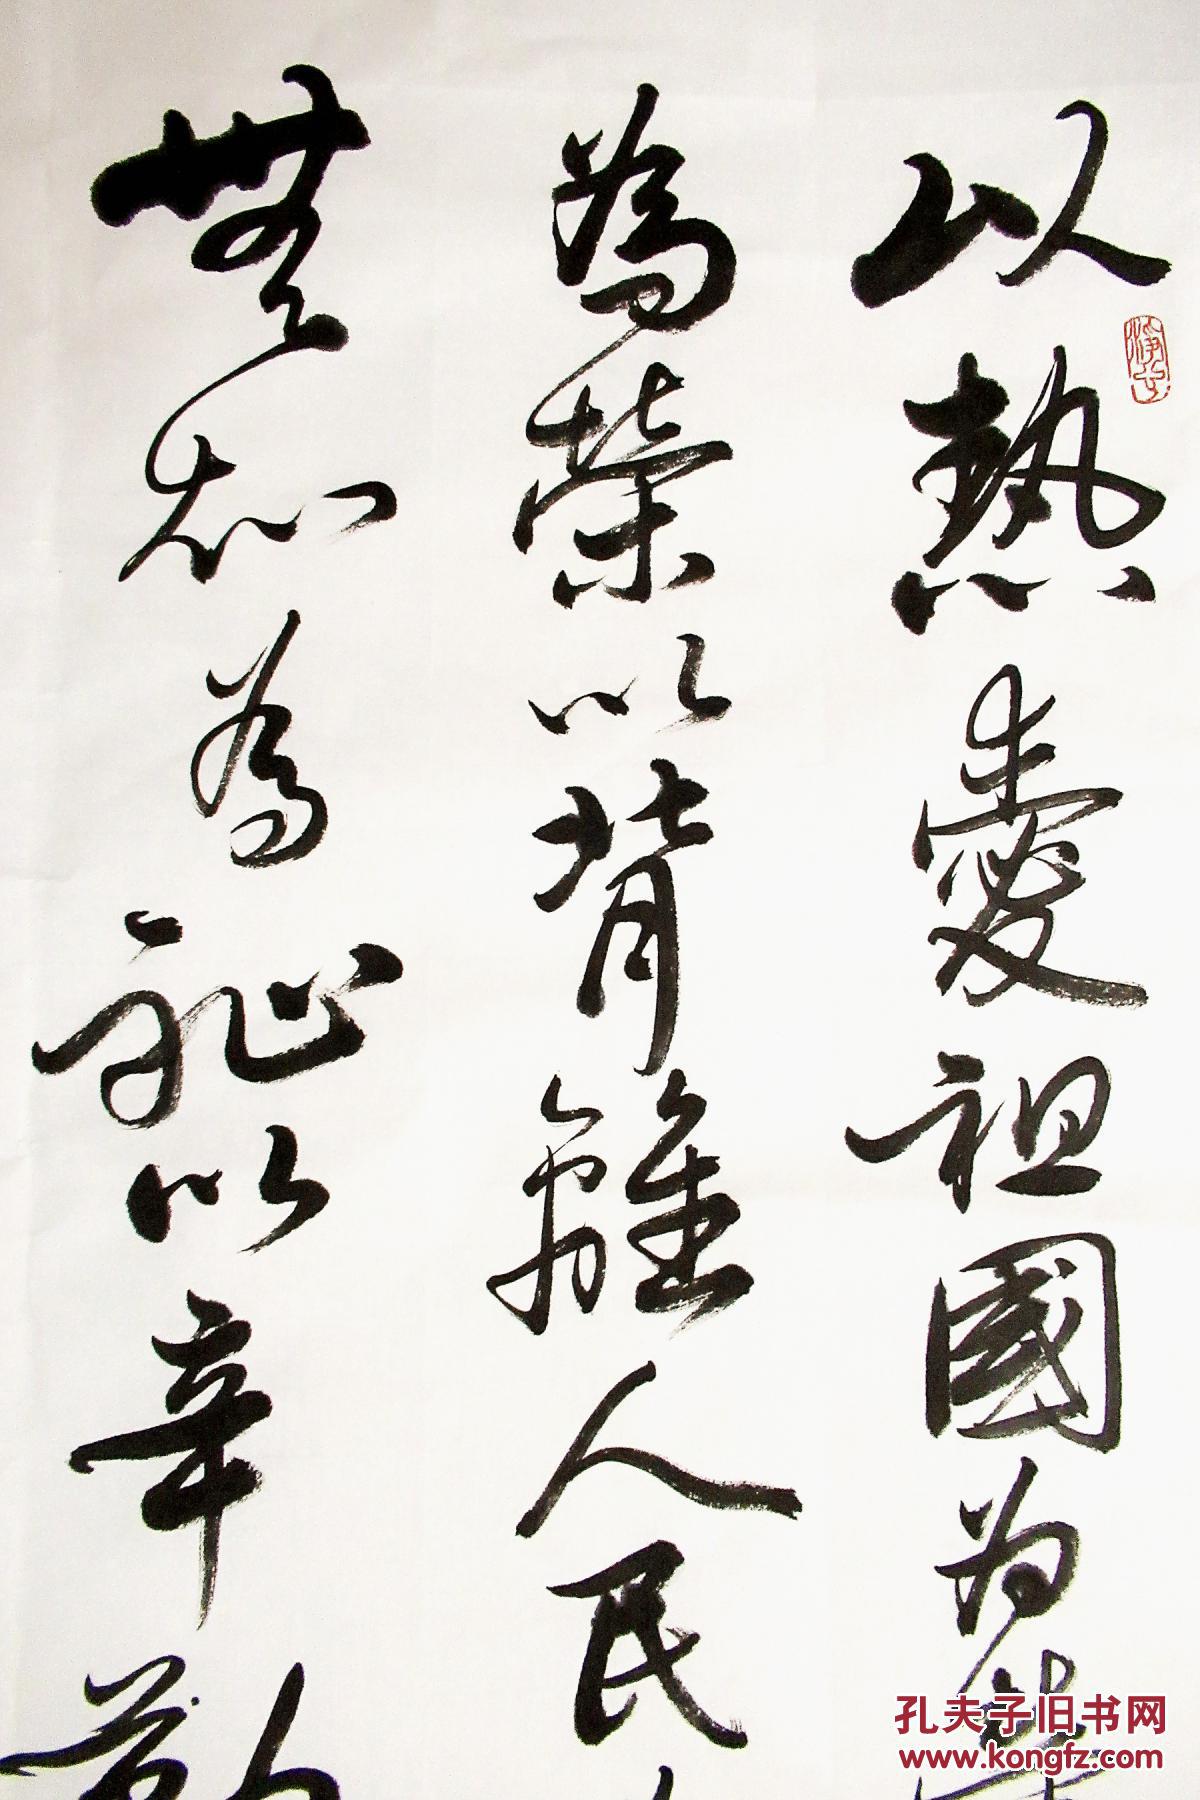 以熱愛祖國为荣
為榮以背離人民
無知為耻以辛勤
淨心
孔夫子旧书网
www.kongfz.com